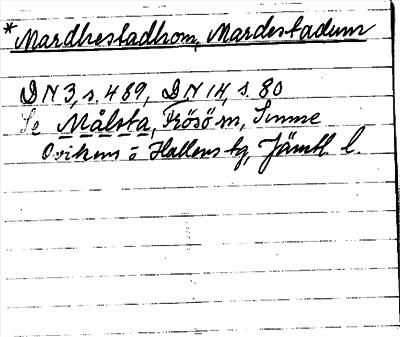 *Mardhestadhom, Mardestadum
DN 3, s. 489, DN 14, s. 80
Se Målsta, Frösö sn, Sunne
Ovikens o Hallens tg, Jämtl. l.